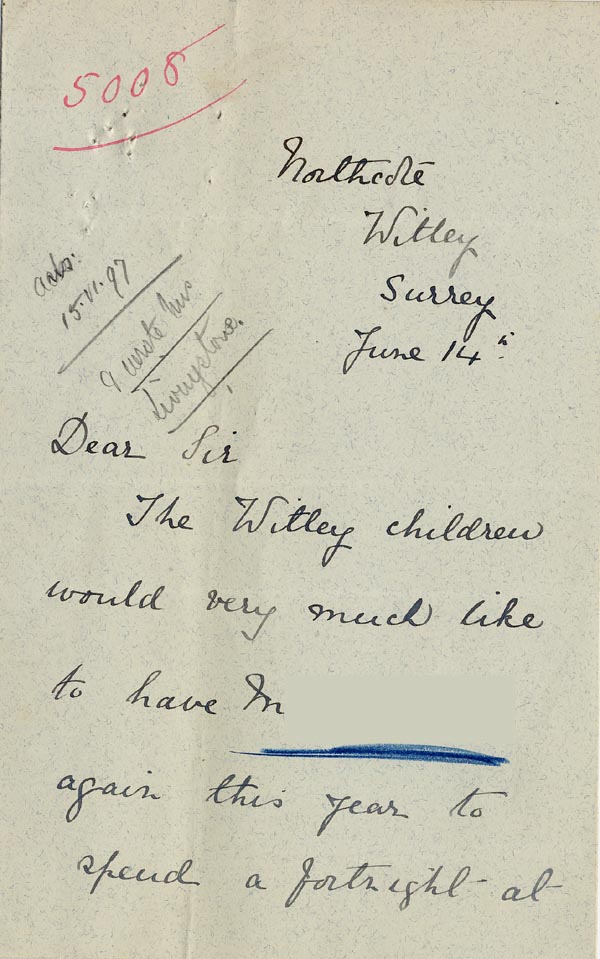 5008
Northcote
Witley
Surrey
June 14th.
acks:
15.VI.97
I wrote Mrs
Livingstone.
Dear Sir
The Witley children
would very much like
to have M
again this year to
spend a fortnight at